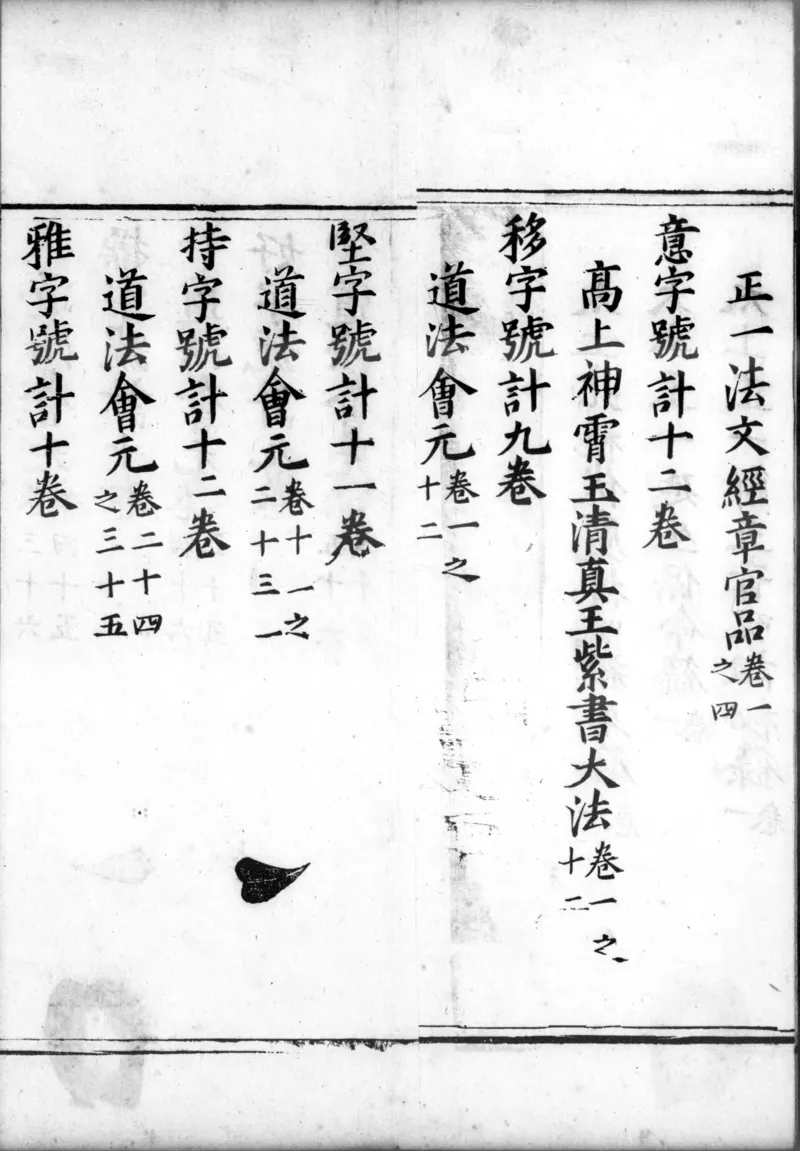 正一法文經章官品卷一之四
意字號計十二卷
高上神霄玉清真王紫書大法卷一之十二
移字號計九卷
道法會元卷一之十二
堅字號計十一卷
道法會元卷十一之二十三一
持字號計十二卷
道法會元卷二十四之三十五
雅字號計十卷